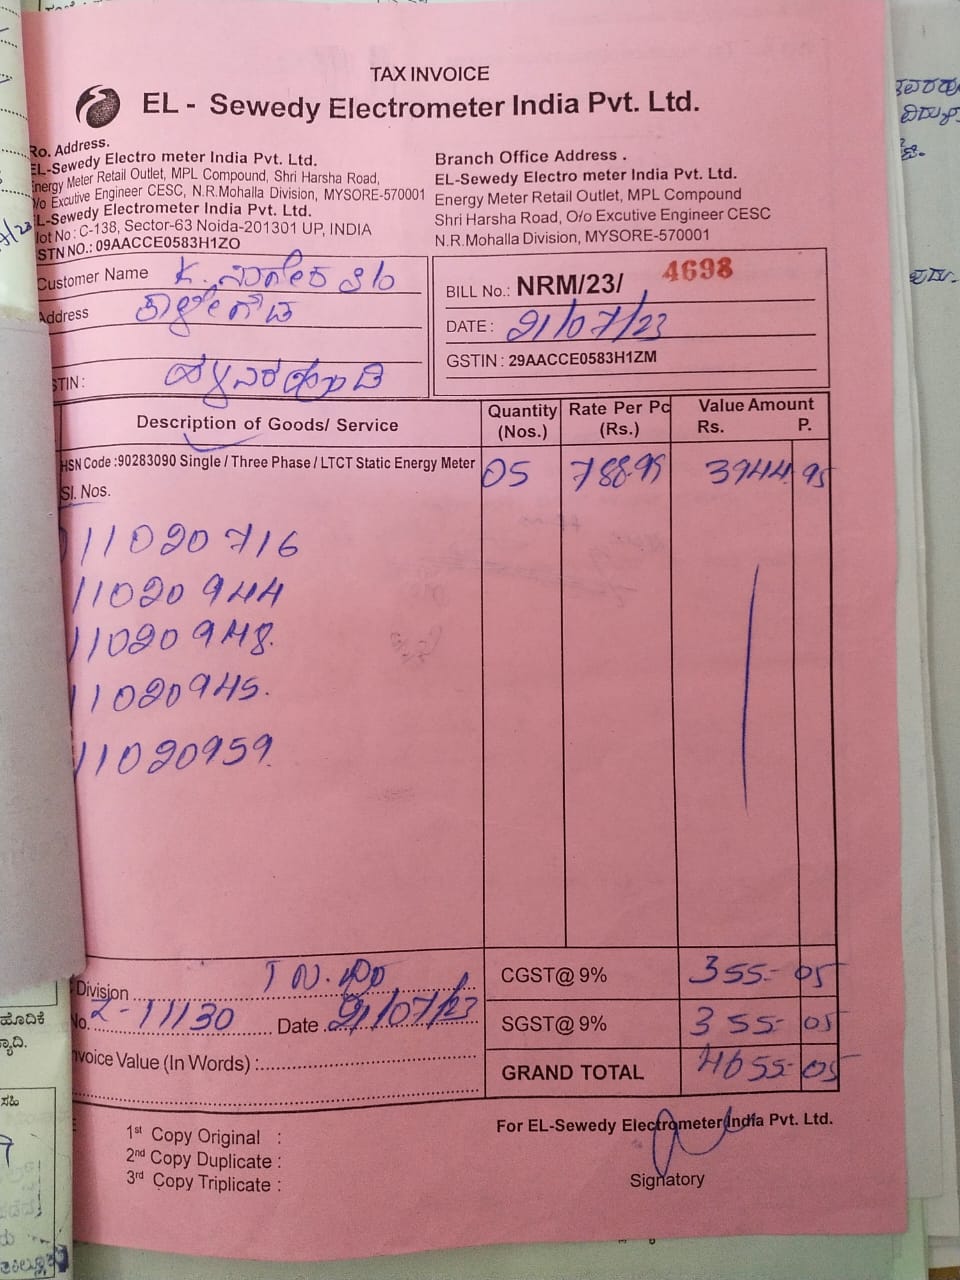 TAX INVOICE
EL - Sewedy Electrometer India Pvt. Ltd.
Ro. Address.
EL-Sewedy Electro meter India Pvt. Ltd.
Energy Meter Retail Outlet, MPL Compound, Shri Harsha Road,
/o Excutive Engineer CESC, N.R.Mohalla Division, MYSORE-570001
L-Sewedy Electrometer India Pvt. Ltd.
lot No : C-138, Sector-63 Noida-201301 UP, INDIA
STN NO.: 09AACCE0583H1ZO
Branch Office Address .
EL-Sewedy Electro meter India Pvt. Ltd.
Energy Meter Retail Outlet, MPL Compound
Shri Harsha Road, O/o Excutive Engineer CESC
N.R.Mohalla Division, MYSORE-570001
Customer Name K.
Address
STIN :
BILL No.: NRM/23/ 4698
DATE : 21/07/23
GSTIN : 29AACCE0583H1ZM
Description of Goods/ Service
Quantity (Nos.)
Rate Per Pc (Rs.)
Value Amount
Rs. P.
HSN Code :90283090 Single / Three Phase / LTCT Static Energy Meter 05 788-99 3944 95
Sl. Nos.
11020716
11020944
11020948.
11020945.
11020959.
CGST@ 9% 355- 05
SGST@ 9% 355- 05
GRAND TOTAL 4655- 05
Division
No. 2-11130 Date 21/07/23
nvoice Value (In Words) :
For EL-Sewedy Electrometer India Pvt. Ltd.
1st Copy Original :
2nd Copy Duplicate :
3rd Copy Triplicate :
Signatory